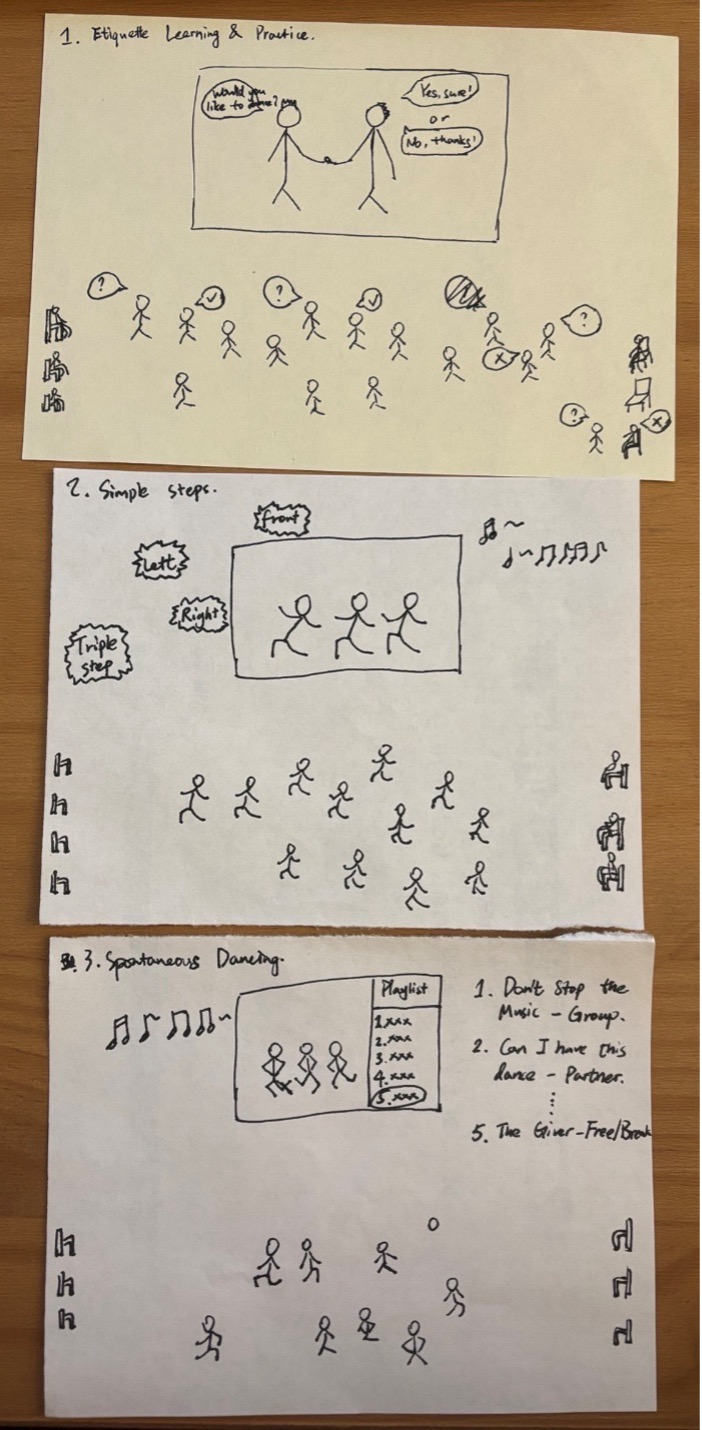 1. Etiquette Learning & Practice.
Would you
like to dance?
Yes, sure!
or
No, thanks!
?
?
?
x
?
x
2. Simple steps.
front
Left
Right
Triple
step
3. Spontaneous Dancing.
Playlist
1.xxx
2.xxx
3.xxx
4.xxx
5.xxx
1. Don't Stop the
Music - Group.
2. Can I have this
dance - Partner.
5. The Giver-Free/Break